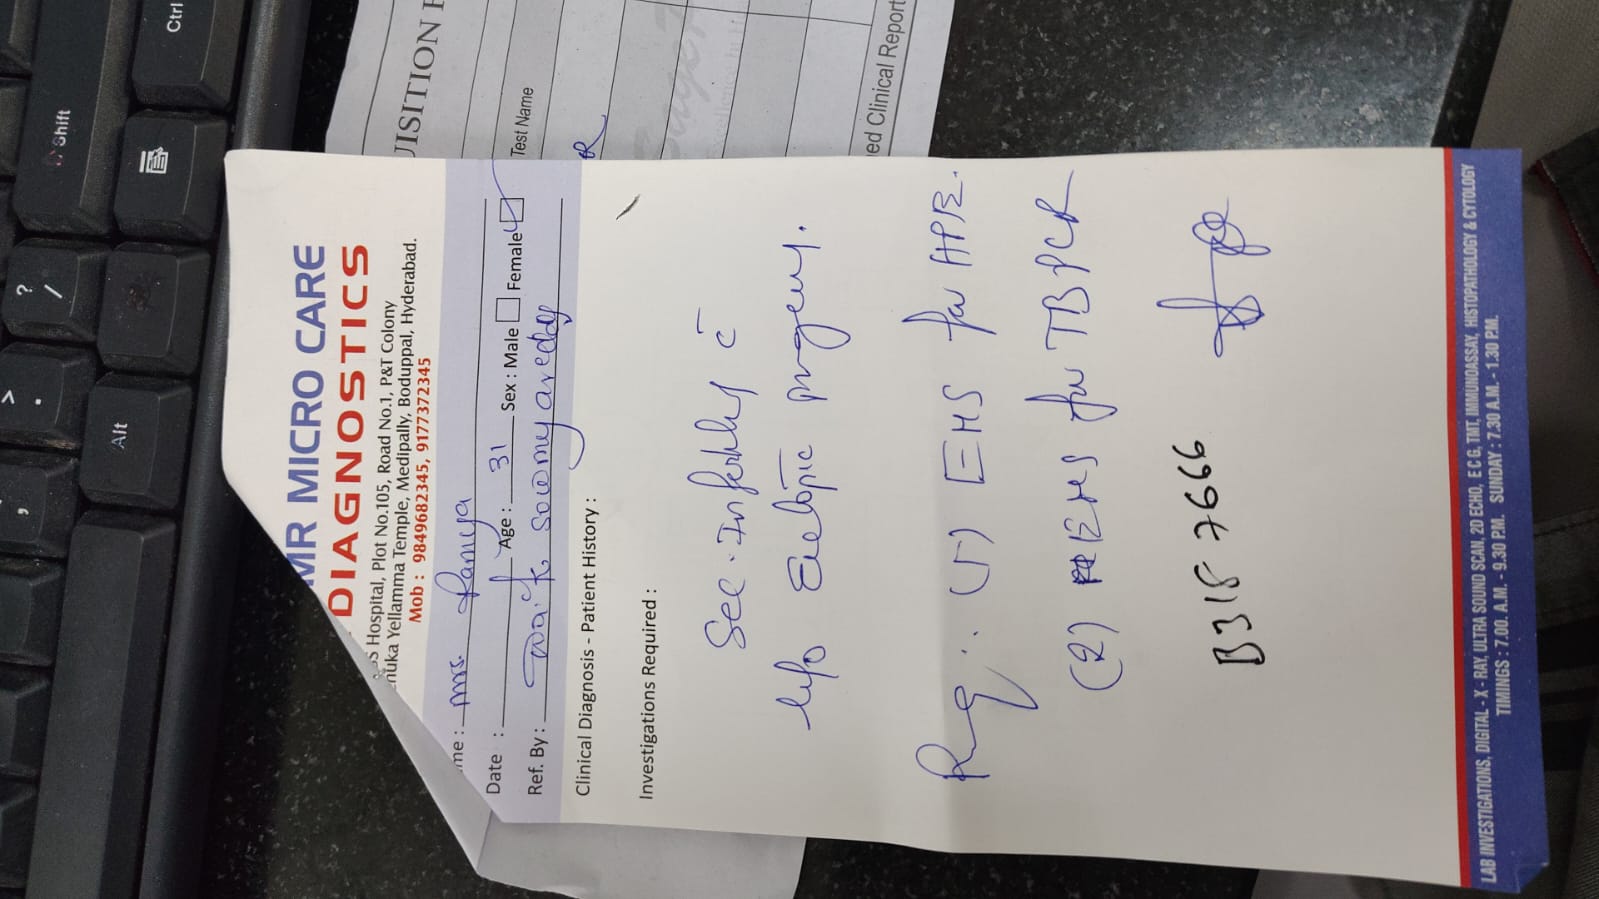 MR MICRO CARE
DIAGNOSTICS
Hospital, Plot No.105, Road No.1, P&T Colony
nuka Yellamma Temple, Medipally, Boduppal, Hyderabad.
Mob : 9849682345, 9177372345
me : Mrs. Ramya
Date : Age : 31 Sex : Male Female
Ref. By : sowmya reddy
Clinical Diagnosis - Patient History :
Investigations Required :
Sec. Infertility c̄
h/o Ectopic pregnancy.
Rq : (1) EMS for HPE.
(2) EMS for TB PCR
B318 7666
LAB INVESTIGATIONS, DIGITAL - X - RAY, ULTRA SOUND SCAN, 2D ECHO, E C G, TMT, IMMUNOASSAY, HISTOPATHOLOGY & CYTOLOGY
TIMINGS : 7.00. A.M. - 9.30 P.M. SUNDAY : 7.30 A.M. - 1.30 P.M.
UISITION F
Test Name
ed Clinical Report
Ctrl
Shift
?
/
>
.
,
Alt